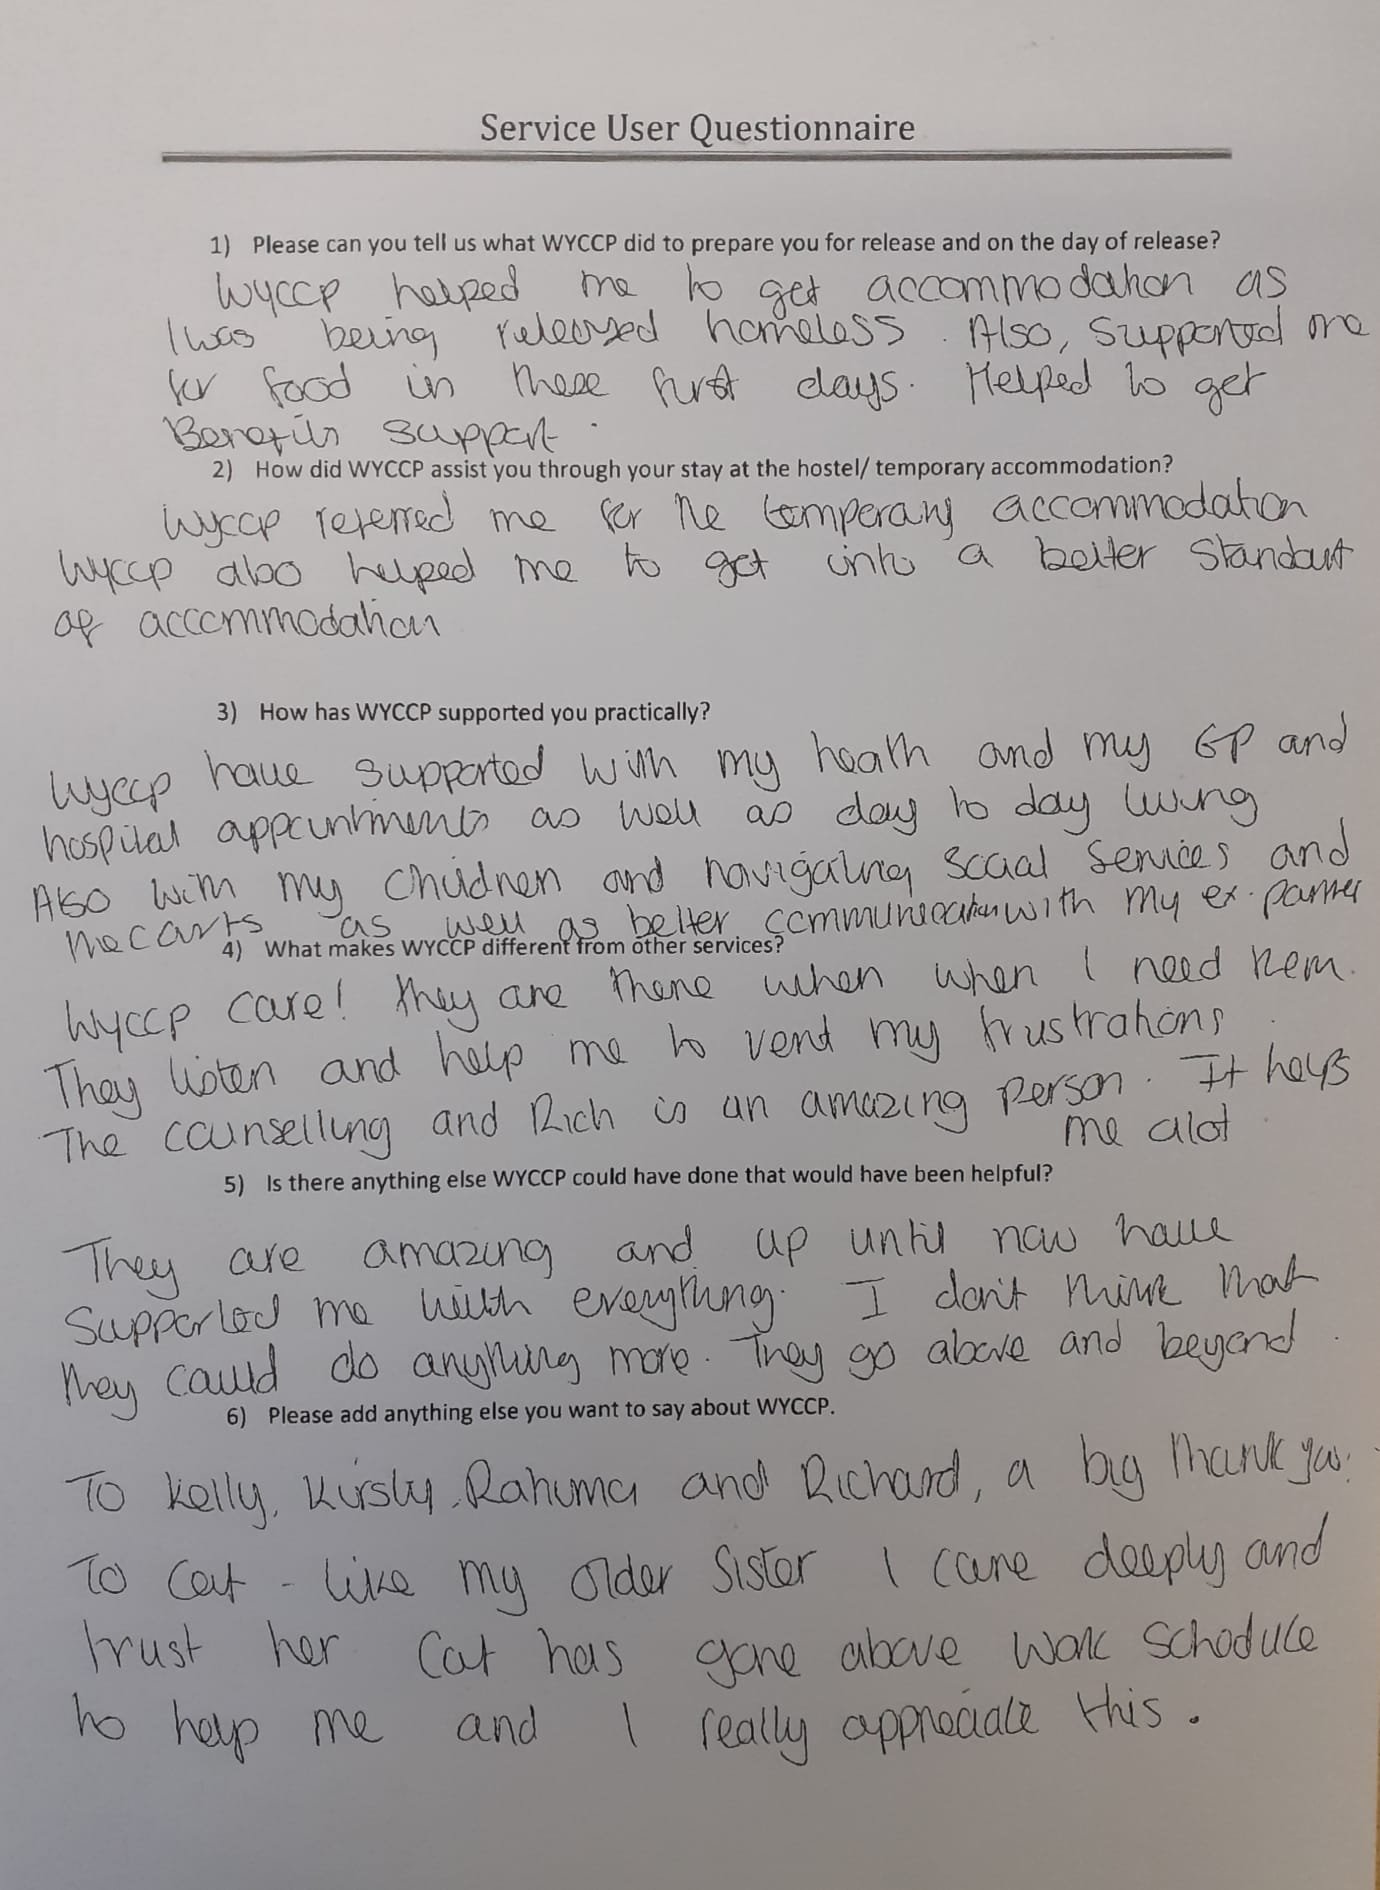 Service User Questionnaire
1) Please can you tell us what WYCCP did to prepare you for release and on the day of release?
WYCCP helped me to get accommodation as
I was being released homeless. Also, supported me
for food in these first days. Helped to get
Benefits support.
2) How did WYCCP assist you through your stay at the hostel/ temporary accommodation?
WYCCP referred me for the temperary accommodation
WYCCP also helped me to get into a better standard
of accommodation
3) How has WYCCP supported you practically?
WYCCP have supported with my health and my GP and
hospital appointments as well as day to day living
Also with my children and navigating social services and
the courts as well as better communication with my ex-partner
4) What makes WYCCP different from other services?
WYCCP care! They are there when when I need them.
They listen and help me to vent my frustrations.
The counselling and Rich is an amazing person. It helps
me alot
5) Is there anything else WYCCP could have done that would have been helpful?
They are amazing and up until now have
supported me with everything. I don't think that
they could do anything more. They go above and beyond.
6) Please add anything else you want to say about WYCCP.
To Kelly, Kirsty, Rahima and Richard, a big thank you.
To Cat - like my older sister I care deeply and
trust her Cat has gone above work schedule
to help me and I really appreciate this.